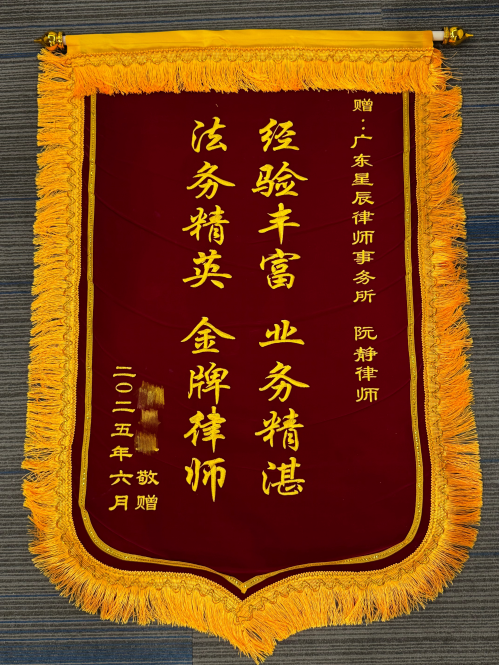 赠：广东星辰律师事务所 阮静律师
经验丰富 业务精湛
法务精英 金牌律师
敬赠
二〇二五年六月